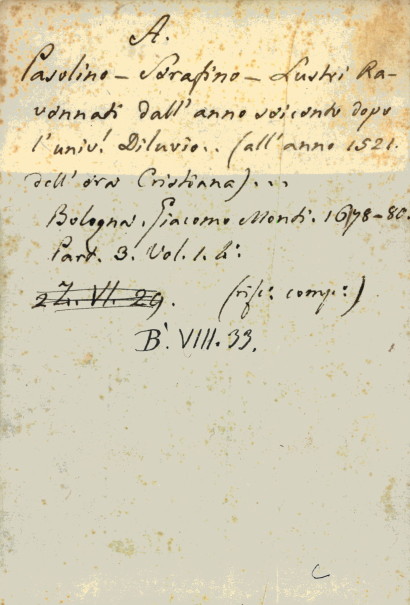 A.
Pasolino - Serafino - Lustri Ra-
vennati dall'anno seicento dopo
l'univ! Diluvio.. (all'anno 1521.
dell'era Cristiana)...
Bologna. Giacomo Monti. 1678-80.
Part. 3. Vol. 1. 4:
2Z. VI. 29. (rife: comp:)
B`. VIII. 33.